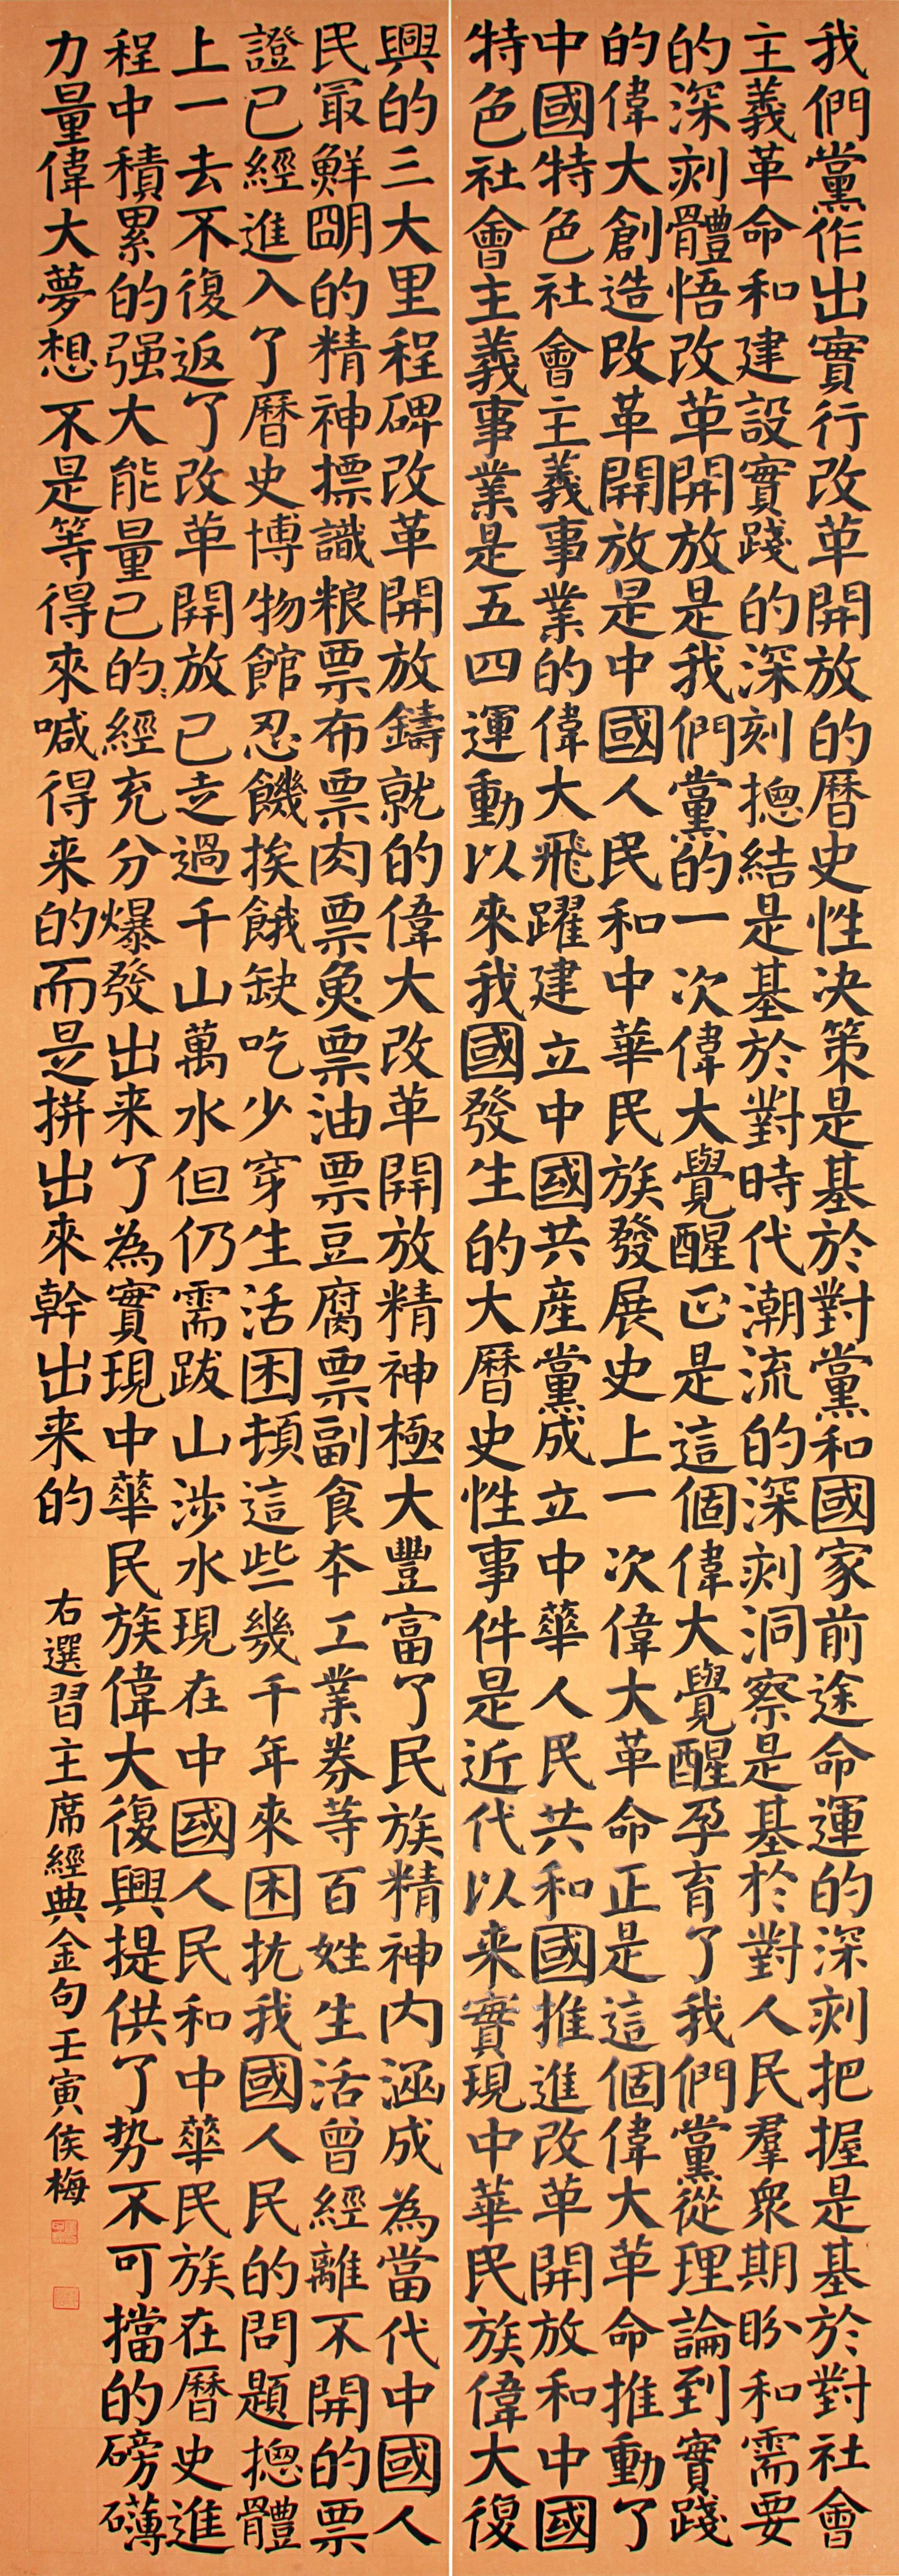 我們黨作出實行改革開放的曆史性決策是基於對黨和國家前途命運的深刻把握是基於對社會
主義革命和建設實踐的深刻摠結是基於對時代潮流的深刻洞察是基於對人民羣衆期盼和需要
的深刻體悟改革開放是我們黨的一次偉大覺醒正是這個偉大覺醒孕育了我們黨從理論到實踐
的偉大創造改革開放是中國人民和中華民族發展史上一次偉大革命正是這個偉大革命推動了
中國特色社會主義事業的偉大飛躍建立中國共産黨成立中華人民共和國推進改革開放和中國
特色社會主義事業是五四運動以來我國發生的大曆史性事件是近代以来實現中華民族偉大復
興的三大里程碑改革開放鑄就的偉大改革開放精神極大豐富了民族精神内涵成為當代中國人
民冣鮮朙的精神摽識粮票布票肉票魚票油票豆腐票副食本工業券等百姓生活曾經離不開的票
證已經進入了曆史博物館忍饑挨餓缺吃少穿生活困頓這些幾千年來困扰我國人民的問題摠體
上一去不復返了改革開放已走過千山萬水但仍需跋山涉水現在中國人民和中華民族在曆史進
程中積累的强大能量已的經充分爆發出来了為實現中華民族偉大復興提供了势不可擋的磅礴
力量偉大夢想不是等得來喊得来的而是拼出來幹出来的
右選習主席經典金句壬寅侯梅